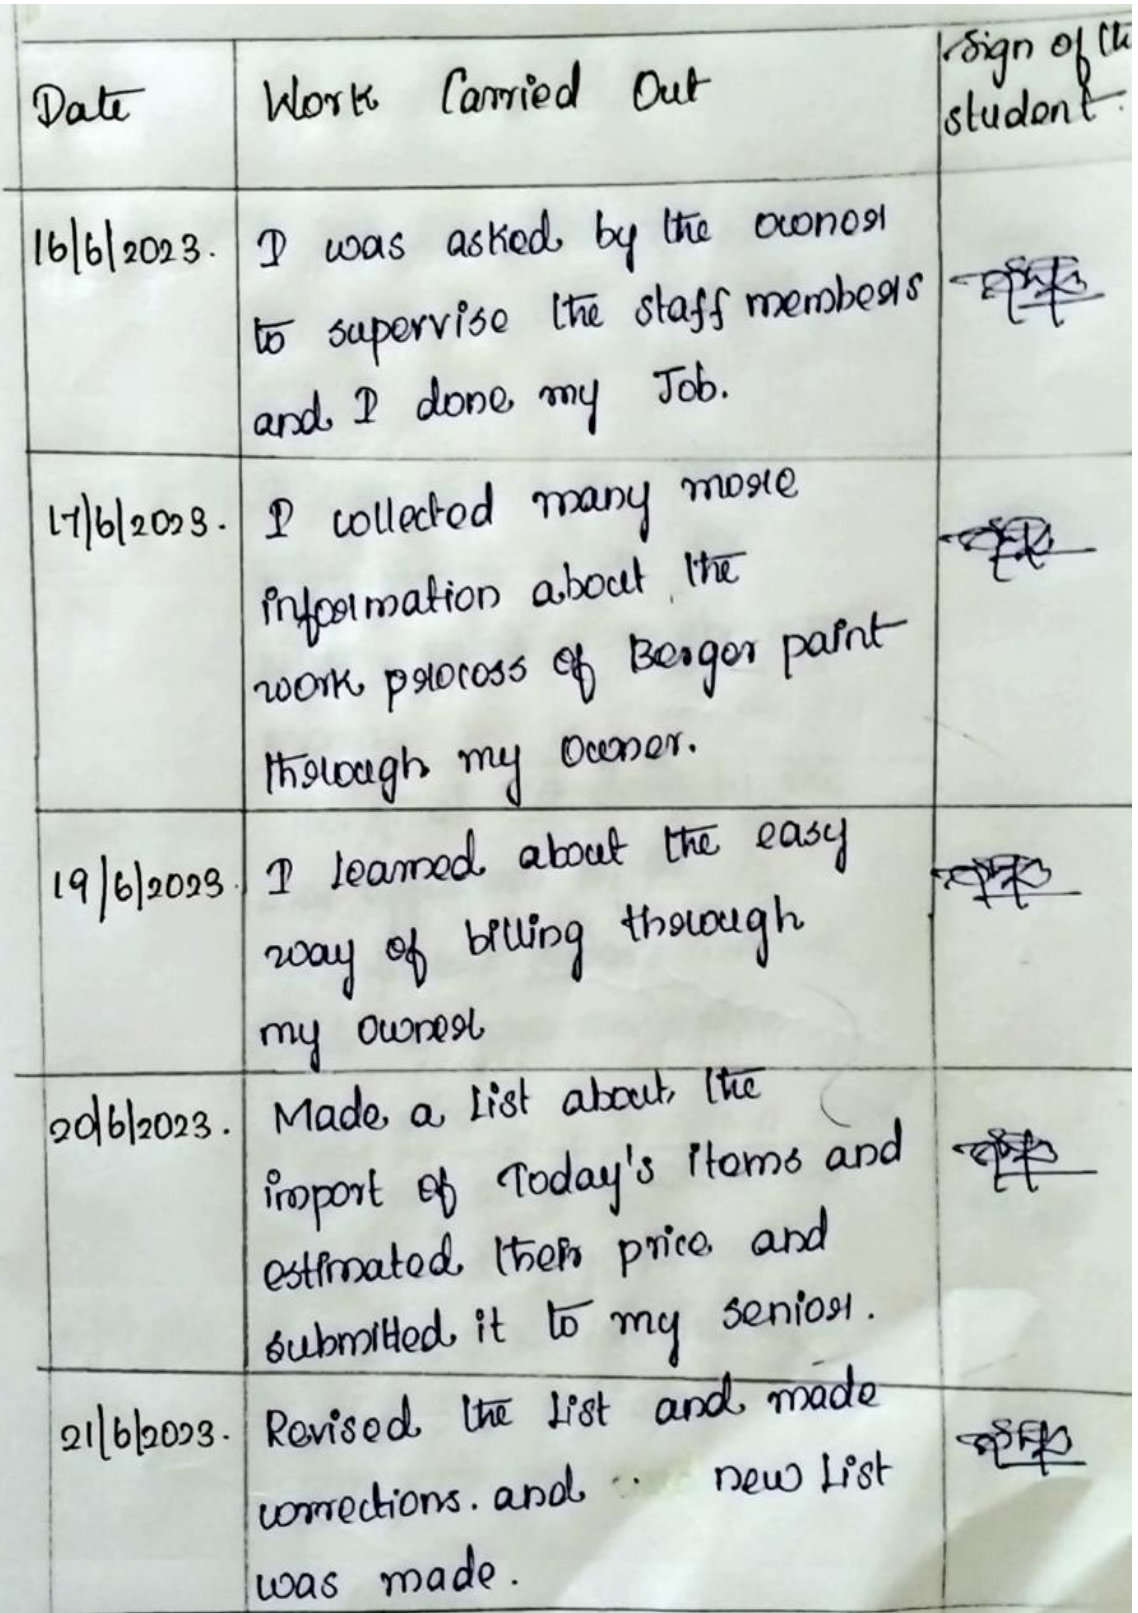 Date
Work Carried Out
Sign of the
student.
16/6/2023.
I was asked by the owner
to supervise the staff members
and I done my Job.
17/6/2023.
I collected many more
information about the
work process of Berger paint
through my owner.
19/6/2023.
I learned about the easy
way of billing through
my owner
20/6/2023.
Made a List about the
import of Today's items and
estimated their price and
submitted it to my senior.
21/6/2023.
Revised the List and made
corrections. and new List
was made.